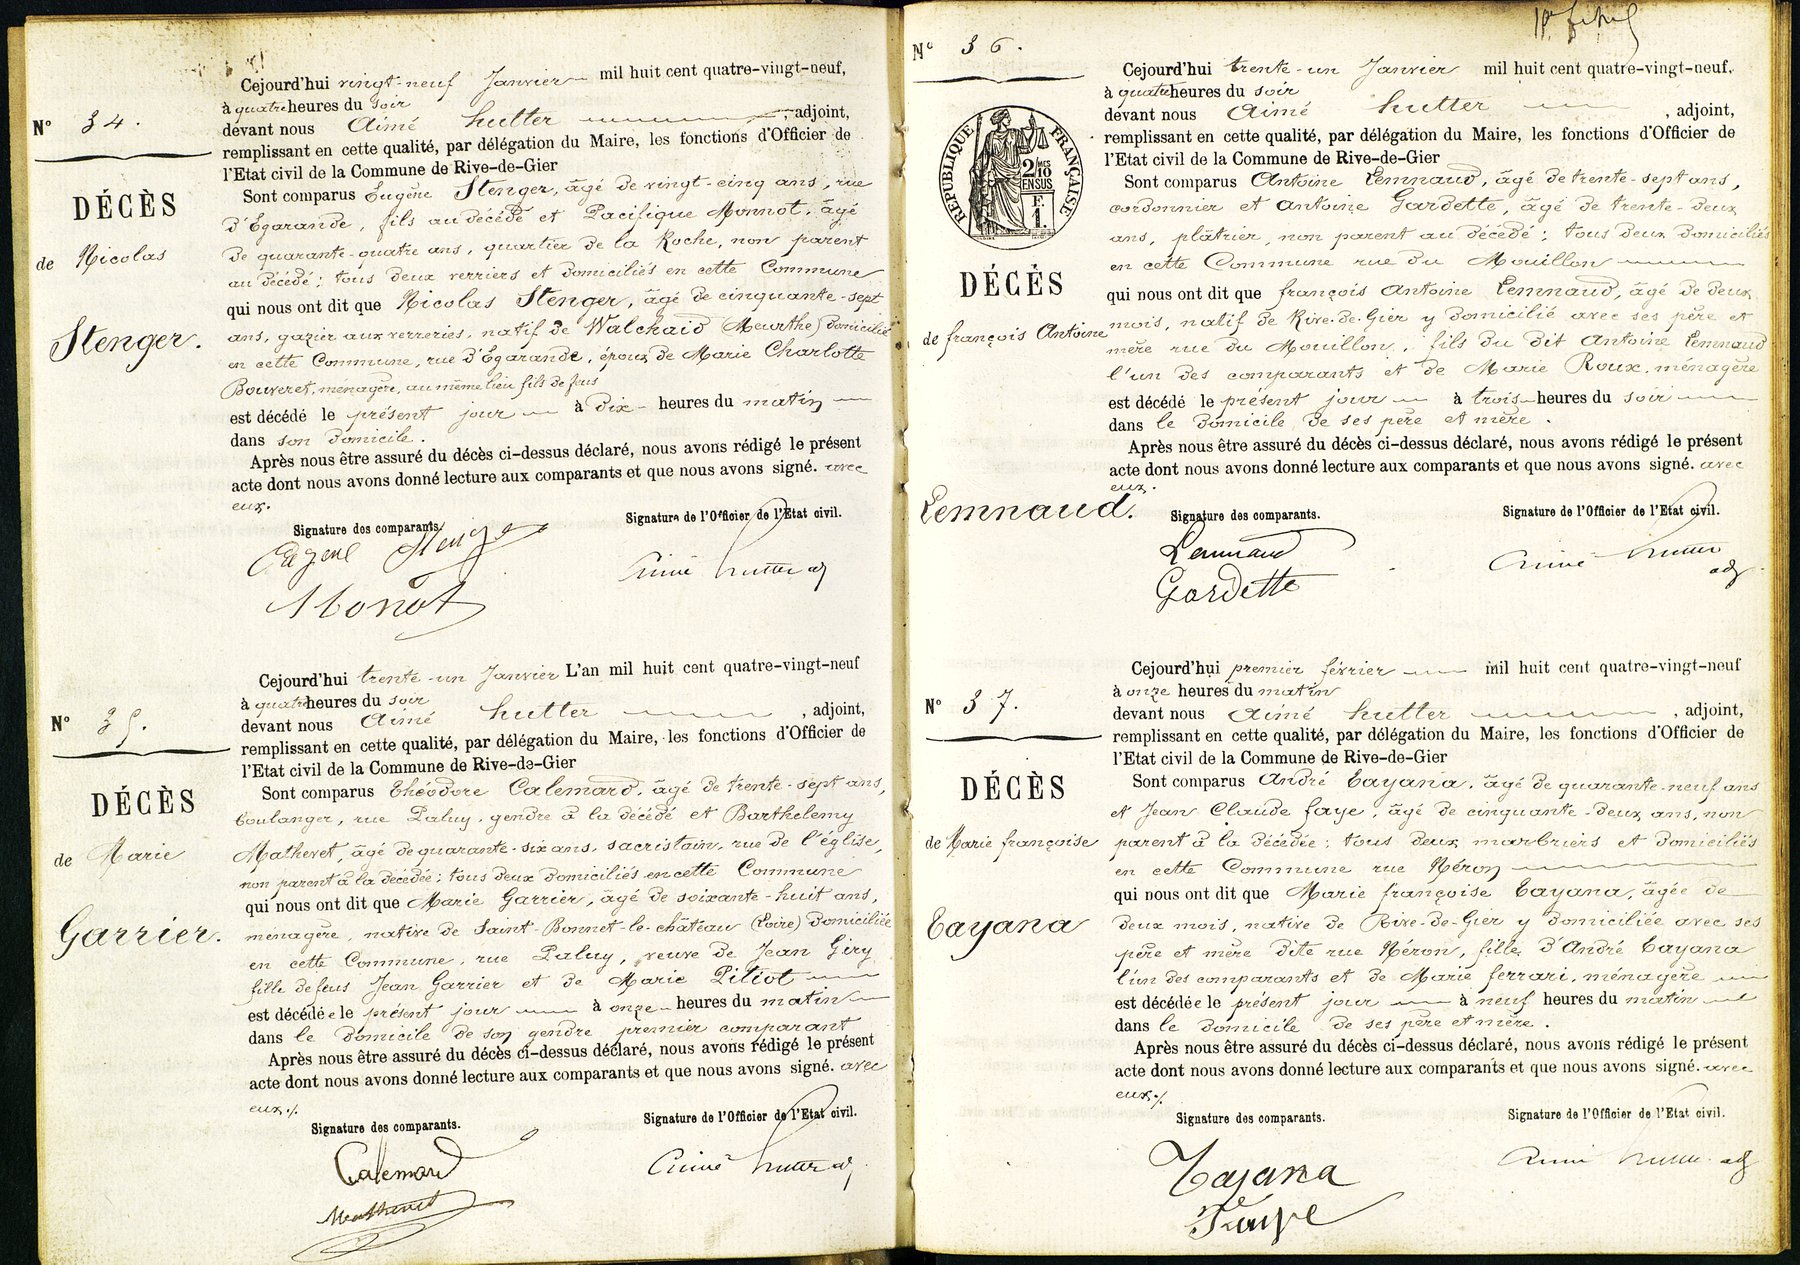 Nº 34.
DÉCÈS
de Nicolas
Stenger.
Cejourd'hui vingt-neuf Janvier mil huit cent quatre-vingt-neuf,
à quatre heures du soir
devant nous Aimé hutter , adjoint,
remplissant en cette qualité, par délégation du Maire, les fonctions d'Officier de
l'Etat civil de la Commune de Rive-de-Gier
Sont comparus Eugène Stenger, âgé de vingt-cinq ans, rue
d'Egarande, fils au décédé et Pacifique Monnot, âgé
de quarante-quatre ans, quartier de la Roche, non parent
au décédé; tous deux verriers et domiciliés en cette Commune
qui nous ont dit que Nicolas Stenger, âgé de cinquante-sept
ans, gazier aux verreries, natif de Walchaid (Meurthe) domicilié
en cette Commune, rue d'Egarande, époux de Marie Charlotte
Bouveret, ménagère, au même lieu fils de feus
est décédé le présent jour à dix heures du matin
dans son domicile.
Après nous être assuré du décès ci-dessus déclaré, nous avons rédigé le présent
acte dont nous avons donné lecture aux comparants et que nous avons signé. avec
eux.
Signature des comparants. Signature de l'Officier de l'Etat civil.
Eugene Stenger
Aimé hutter adj
Monot
Nº 35.
DÉCÈS
de Marie
Garrier.
Cejourd'hui trente-un Janvier L'an mil huit cent quatre-vingt-neuf
à quatre heures du soir
devant nous Aimé hutter , adjoint,
remplissant en cette qualité, par délégation du Maire, les fonctions d'Officier de
l'Etat civil de la Commune de Rive-de-Gier
Sont comparus Théodore Calemard, âgé de trente-sept ans,
boulanger, rue Paluy, gendre à la décédé et Barthelemy
Mathevet, âgé de quarante-six ans, sacristain, rue de l'église,
non parent à la décédée; tous deux domiciliés en cette Commune
qui nous ont dit que Marie Garrier, âgé de soixante-huit ans,
ménagère, native de Saint-Bonnet-le-château (Loire) domiciliée
en cette Commune, rue Paluy, veuve de Jean Giry
fille de feus Jean Garrier et de Marie Pitiot
est décédée le présent jour à onze heures du matin
dans le domicile de son gendre premier comparant
Après nous être assuré du décès ci-dessus déclaré, nous avons rédigé le présent
acte dont nous avons donné lecture aux comparants et que nous avons signé. avec
eux./.
Signature des comparants. Signature de l'Officier de l'Etat civil.
Calemard
Aimé hutter adj
Mathevet
Nº 36.
REPUBLIQUE FRANÇAISE
2/10 MES
EN SUS
F.
1.
DÉCÈS
de françois Antoine
Lemnaud.
Cejourd'hui trente-un Janvier mil huit cent quatre-vingt-neuf,
à quatre heures du soir
devant nous Aimé hutter , adjoint,
remplissant en cette qualité, par délégation du Maire, les fonctions d'Officier de
l'Etat civil de la Commune de Rive-de-Gier
Sont comparus Antoine Lemnaud, âgé de trente-sept ans,
cordonnier et Antoine Gardette, âgé de trente-deux
ans, plâtrier, non parent au décédé; tous deux domiciliés
en cette Commune rue du Mouillon
qui nous ont dit que françois Antoine Lemnaud, âgé de deux
mois, natif de Rive-de-Gier y domicilié avec ses père et
mère rue du Mouillon, fils du dit Antoine Lemnaud
l'un des comparants et de Marie Roux, ménagère
est décédé le présent jour à trois heures du soir
dans le domicile de ses père et mère.
Après nous être assuré du décès ci-dessus déclaré, nous avons rédigé le présent
acte dont nous avons donné lecture aux comparants et que nous avons signé. avec
eux.
Signature des comparants. Signature de l'Officier de l'Etat civil.
Lemnaud
Aimé hutter
adj
Gardette
Nº 37.
DÉCÈS
de Marie françoise
Tayana
Cejourd'hui premier février mil huit cent quatre-vingt-neuf
à onze heures du matin
devant nous Aimé hutter , adjoint,
remplissant en cette qualité, par délégation du Maire, les fonctions d'Officier de
l'Etat civil de la Commune de Rive-de-Gier
Sont comparus André Tayana, âgé de quarante-neuf ans
et Jean Claude faye, âgé de cinquante-deux ans, non
parent à la décédée; tous deux marbriers et domiciliés
en cette Commune rue Néron
qui nous ont dit que Marie françoise Tayana, âgée de
deux mois, native de Rive-de-Gier y domiciliée avec ses
père et mère dite rue Néron, fille d'André Tayana
l'un des comparants et de Marie ferrari, ménagère
est décédée le présent jour à neuf heures du matin
dans le domicile de ses père et mère.
Après nous être assuré du décès ci-dessus déclaré, nous avons rédigé le présent
acte dont nous avons donné lecture aux comparants et que nous avons signé. avec
eux./.
Signature des comparants. Signature de l'Officier de l'Etat civil.
Tayana
Aimé hutter adj